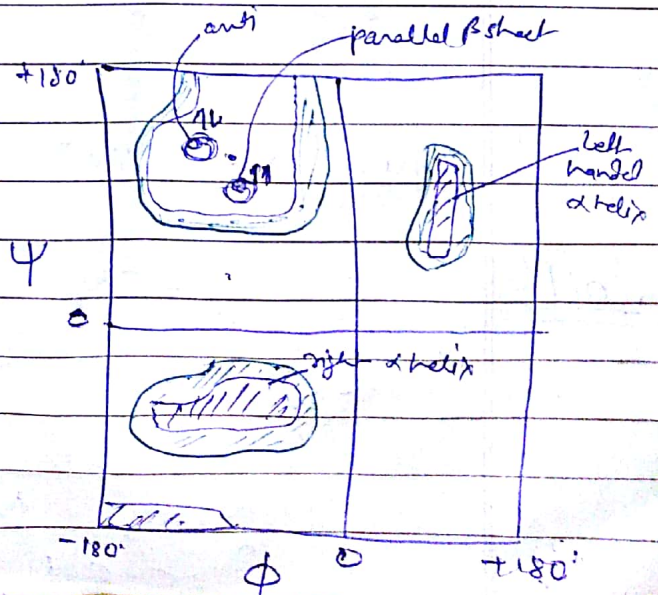 anti
parallel β sheet
+180°
↑↓
↑↑
Left
handed
α helix
Ψ
0
right - α helix
-180°
0
+180°
ϕ